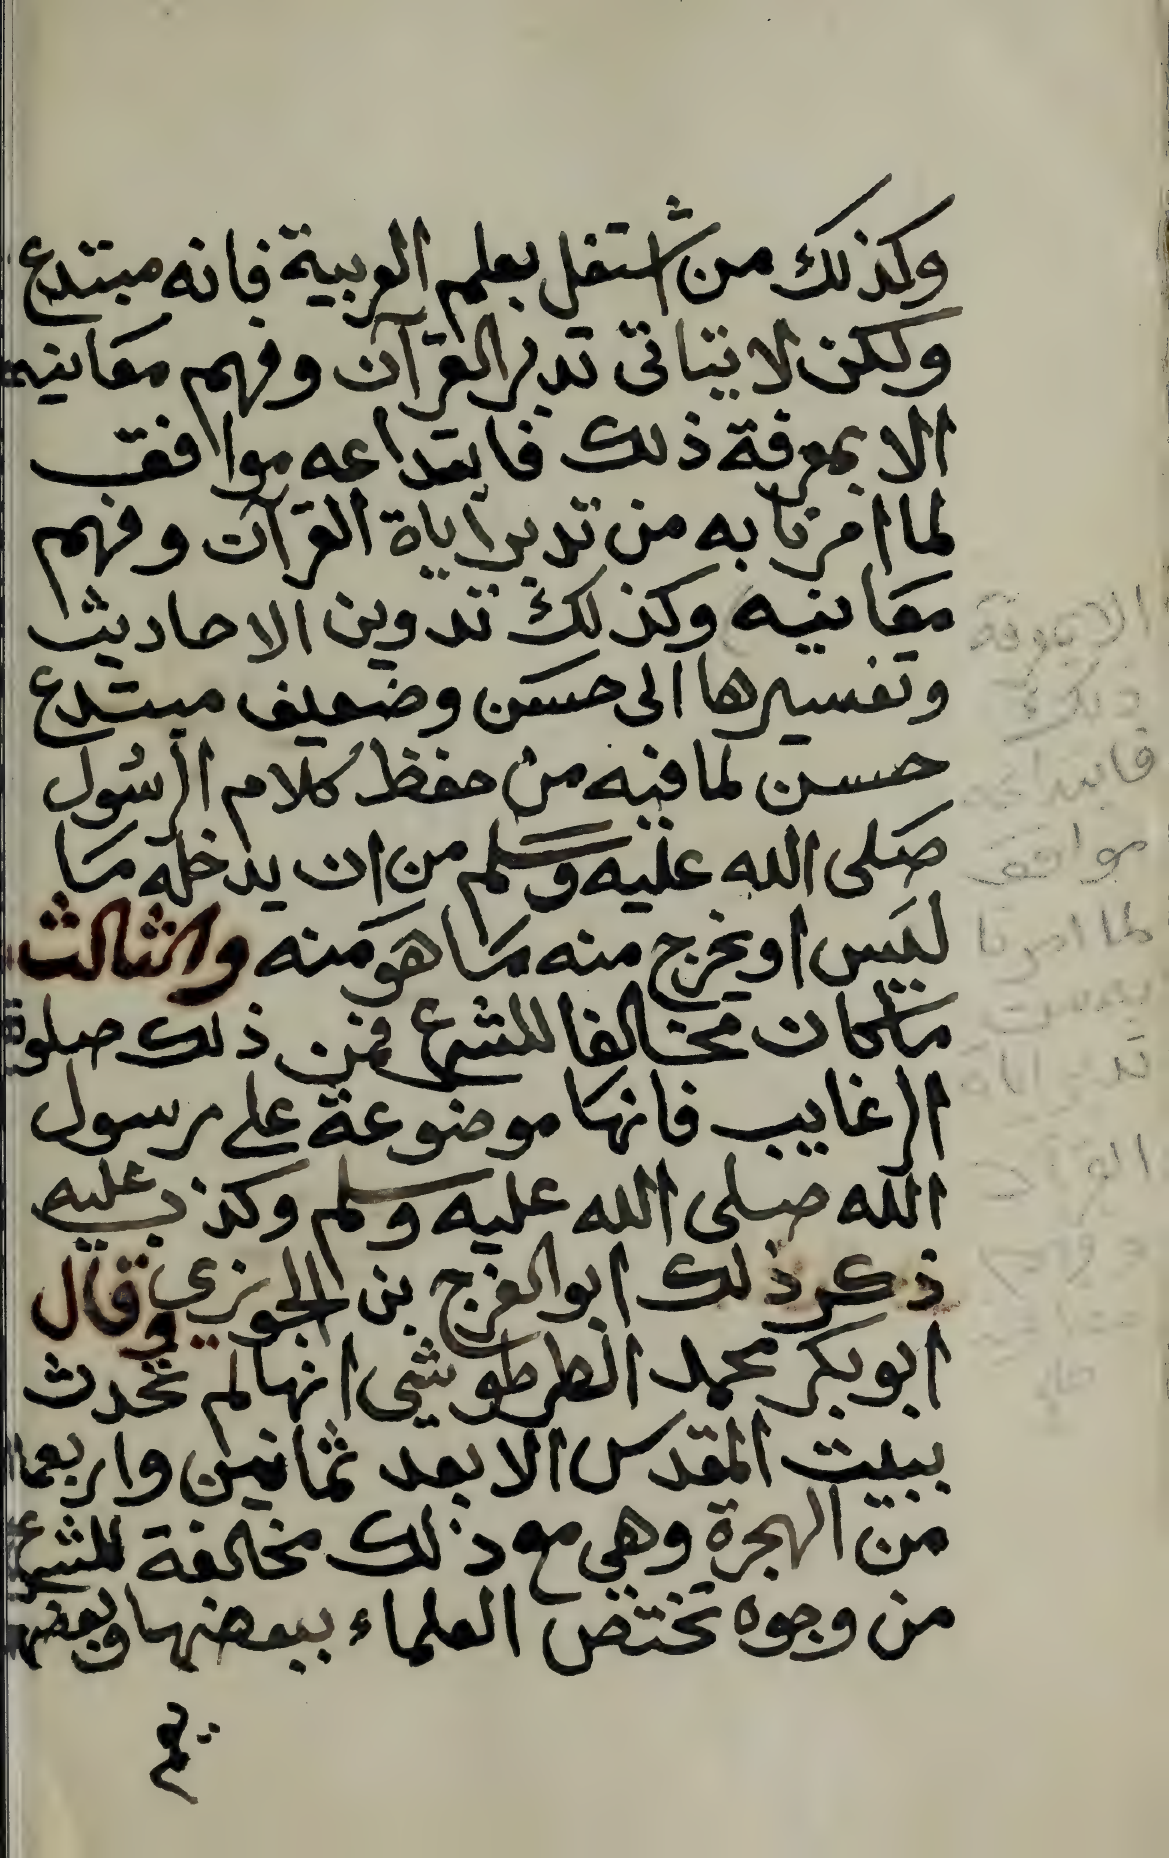 وكذلك من اشتغل بعلم العربية فانه مبتدع
ولكن لا يتاتى تدبر القرآن وفهم معانيه
الا بمعرفة ذلك فابتداعه موافق
لما امرنا به من تدبر آياة القرآن وفهم
معانيه وكذلك تدوين الاحاديث
وتفسيرها الى حسن وضعيف مبتدع
حسن لما فيه من حفظ كلام الرسول
صلى الله عليه وسلم من ان يدخله ما
ليس او يخرج منه ما هو منه والثالث
ما كان مخالفا للشرع فمن ذلك صلوة
الرغايب فانها موضوعة على رسول
الله صلى الله عليه وسلم وكذب عليه
ذكر ذلك ابو الفرج بن الجوزي وقال
ابو بكر محمد الطرطوشي انها لم تحدث
ببيت المقدس الا بعد ثمانين واربعما
من الهجرة وهي مع ذلك مخالفة للشرع
من وجوه تختص العلماء ببعضها وبعضها
الا بمعرفة
ذلك
فابتداعه
موافق
لما امرنا
به من
تدبر اياة
القرآن